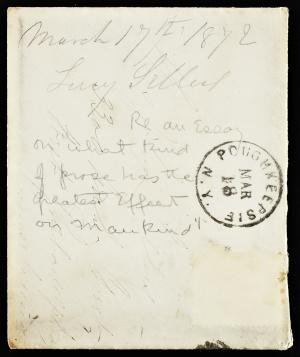 March 17th 1872
Lucy
Re an Essay
on "what kind
of prose has the
greatest Effect
on mankind".
POUGHKEEPSIE N.Y.
MAR
18